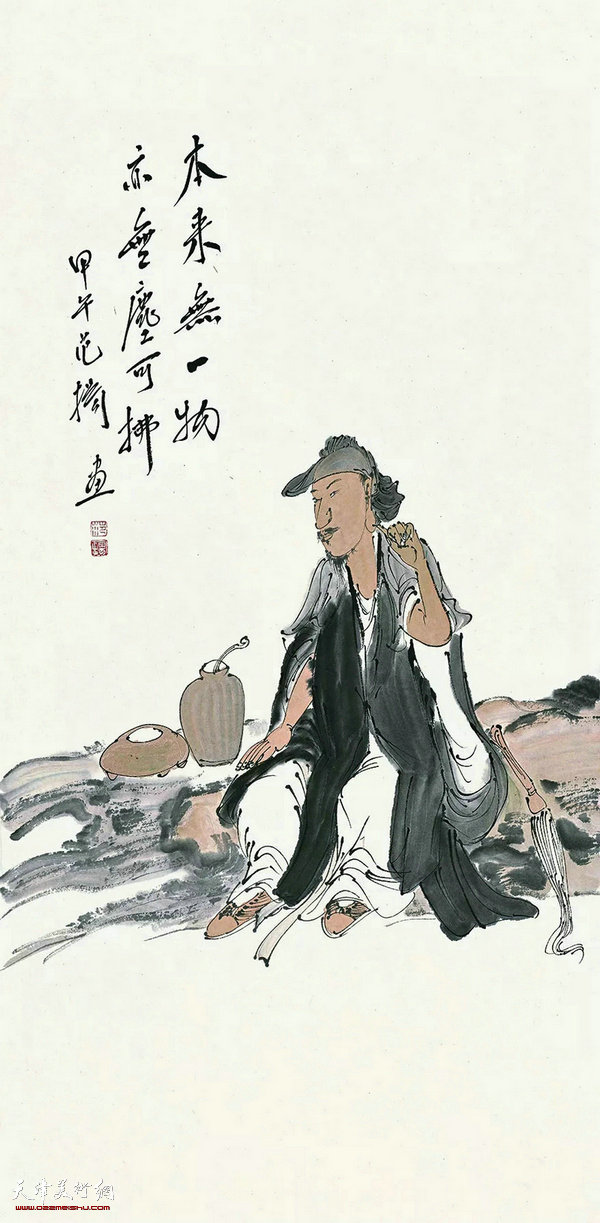 本来無一物
亦無塵可拂
甲午范擕畫
天津美術網
www.022meishu.com